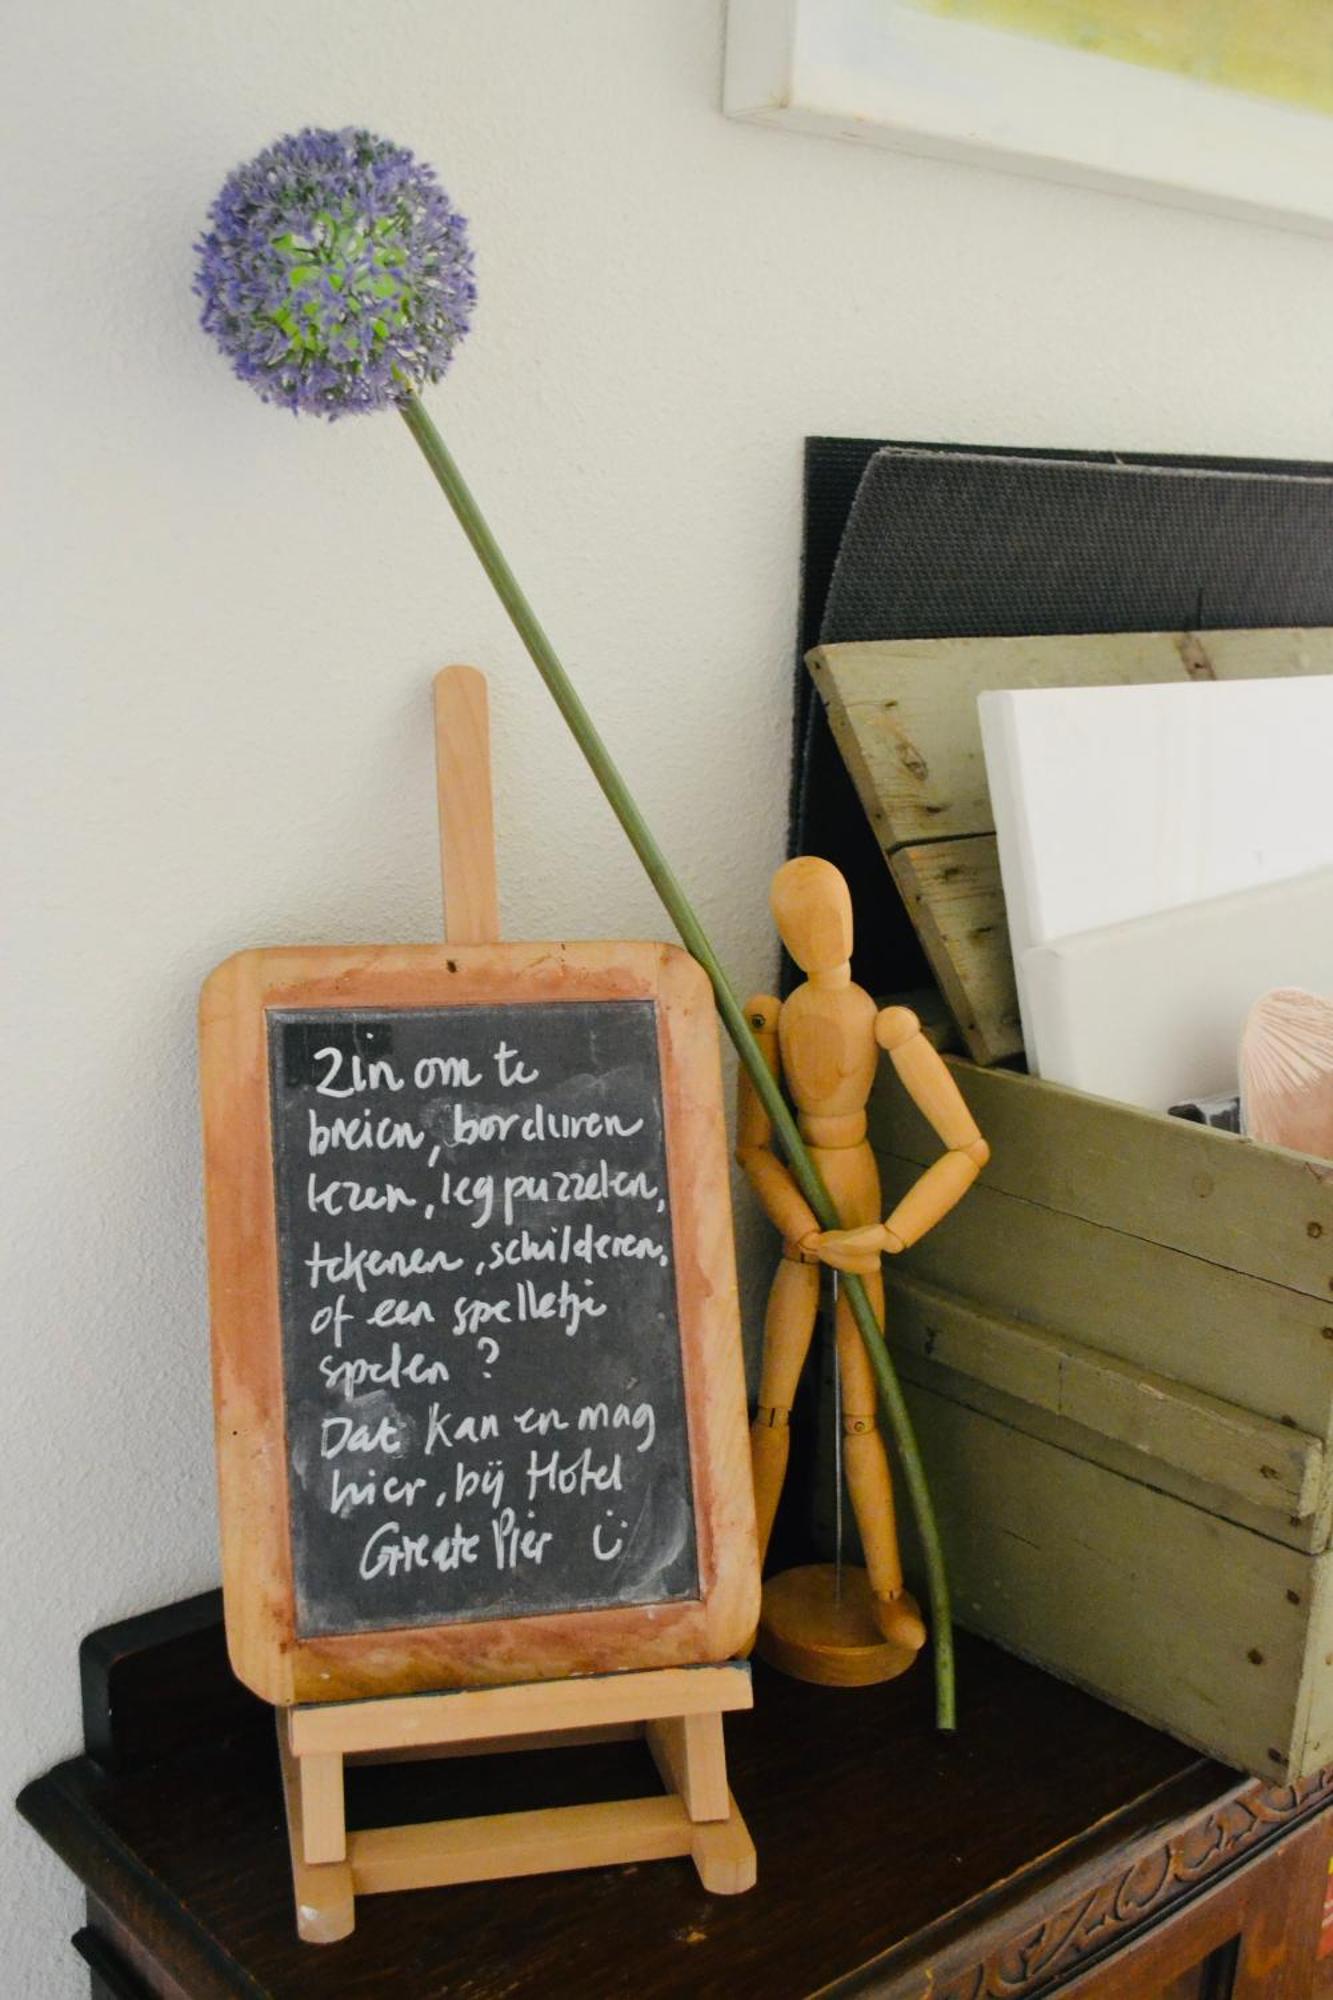 Zin om te
breien, borduren
lezen, legpuzzelen,
tekenen, schilderen,
of een spelletje
spelen ?
Dat kan en mag
hier, bij Hotel
Greate Pier ü